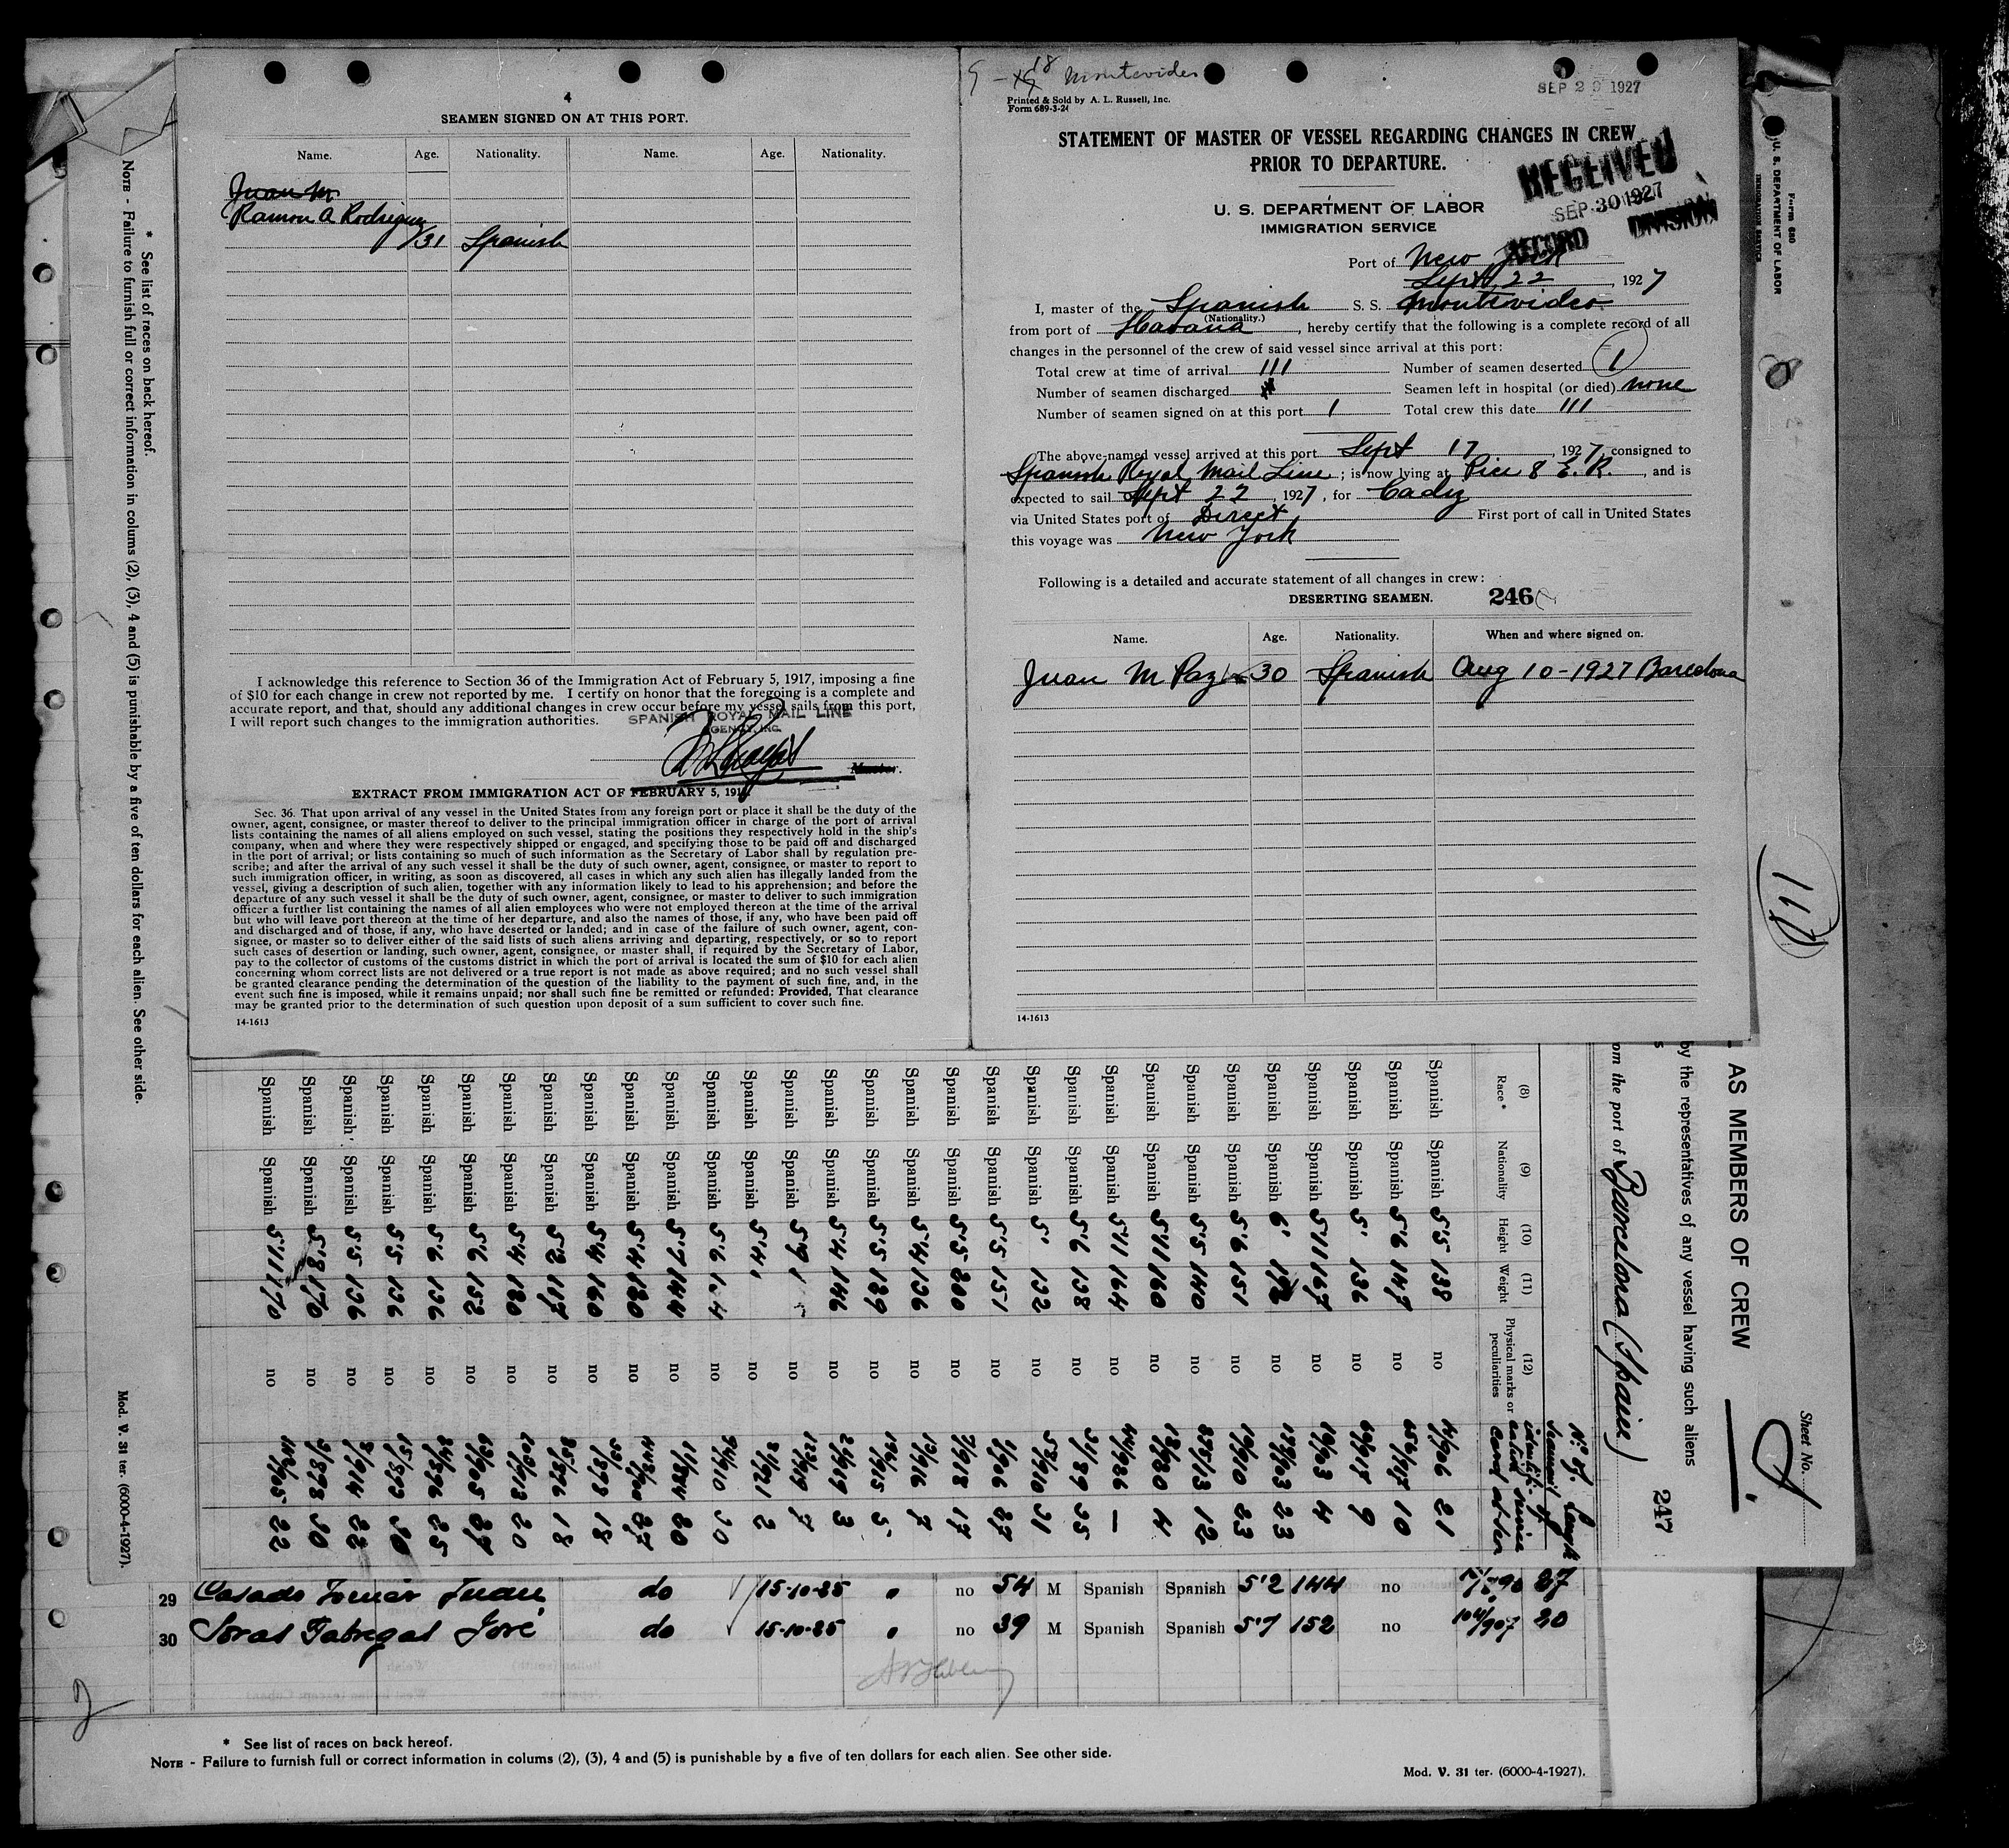 4
SEAMEN SIGNED ON AT THIS PORT.
Name. Age. Nationality. Name. Age. Nationality.
Juan M
Ramon A Rodriguez
31 Spanish
I acknowledge this reference to Section 36 of the Immigration Act of February 5, 1917, imposing a fine
of $10 for each change in crew not reported by me. I certify on honor that the foregoing is a complete and
accurate report, and that, should any additional changes in crew occur before my vessel sails from this port,
I will report such changes to the immigration authorities.
SPANISH ROYAL MAIL LINE
AGENCY, INC.
Master.
EXTRACT FROM IMMIGRATION ACT OF FEBRUARY 5, 1917.
Sec. 36. That upon arrival of any vessel in the United States from any foreign port or place it shall be the duty of the
owner, agent, consignee, or master thereof to deliver to the principal immigration officer in charge of the port of arrival
lists containing the names of all aliens employed on such vessel, stating the positions they respectively hold in the ship's
company, when and where they were respectively shipped or engaged, and specifying those to be paid off and discharged
in the port of arrival; or lists containing so much of such information as the Secretary of Labor shall by regulation pre-
scribe; and after the arrival of any such vessel it shall be the duty of such owner, agent, consignee, or master to report to
such immigration officer, in writing, as soon as discovered, all cases in which any such alien has illegally landed from the
vessel, giving a description of such alien, together with any information likely to lead to his apprehension; and before the
departure of any such vessel it shall be the duty of such owner, agent, consignee, or master to deliver to such immigration
officer a further list containing the names of all alien employees who were not employed thereon at the time of the arrival
but who will leave port thereon at the time of her departure, and also the names of those, if any, who have been paid off
and discharged and of those, if any, who have deserted or landed; and in case of the failure of such owner, agent, con-
signee, or master so to deliver either of the said lists of such aliens arriving and departing, respectively, or so to report
such cases of desertion or landing, such owner, agent, consignee, or master shall, if required by the Secretary of Labor,
pay to the collector of customs of the customs district in which the port of arrival is located the sum of $10 for each alien
concerning whom correct lists are not delivered or a true report is not made as above required; and no such vessel shall
be granted clearance pending the determination of the question of the liability to the payment of such fine, and, in the
event such fine is imposed, while it remains unpaid; nor shall such fine be remitted or refunded: Provided, That clearance
may be granted prior to the determination of such question upon deposit of a sum sufficient to cover such fine.
14-1613
18 Montevideo
SEP 29 1927
Printed & Sold by A. L. Russell, Inc.
Form 689-3-24
STATEMENT OF MASTER OF VESSEL REGARDING CHANGES IN CREW
PRIOR TO DEPARTURE.
RECEIVED
SEP 30 1927
RECORD DIVISION
U. S. DEPARTMENT OF LABOR
IMMIGRATION SERVICE
Port of New York
Sept 22, 1927
I, master of the Spanish S. S. Montevideo
(Nationality.)
from port of Havana, hereby certify that the following is a complete record of all
changes in the personnel of the crew of said vessel since arrival at this port:
Total crew at time of arrival 111 Number of seamen deserted 1
Number of seamen discharged Seamen left in hospital (or died) none
Number of seamen signed on at this port 1 Total crew this date 111
The above-named vessel arrived at this port Sept 17, 1927, consigned to
Spanish Royal Mail Line; is now lying at Pier 8 E. R., and is
expected to sail Sept 22, 1927, for Cadiz
via United States port of Direct First port of call in United States
this voyage was New York
Following is a detailed and accurate statement of all changes in crew:
DESERTING SEAMEN. 246
Name. Age. Nationality. When and where signed on.
Juan M Paz 30 Spanish Aug 10-1927 Barcelona
14-1613
Form 680
U. S. DEPARTMENT OF LABOR
IMMIGRATION SERVICE
111
AS MEMBERS OF CREW
Sheet No. 2
by the representatives of any vessel having such aliens
247
om the port of Barcelona (Spain)
(8) Race* (9) Nationality (10) Height (11) Weight (12) Physical marks or peculiarities
Spanish Spanish 5'5 138 no 21
Spanish Spanish 5'6 147 no 10
Spanish Spanish 5' 136 no 9
Spanish Spanish 5'11 167 no 4
Spanish Spanish 6' no 23
Spanish Spanish 5'6 151 no 23
Spanish Spanish 5'5 140 no 12
Spanish Spanish 5'11 160 no 4
Spanish Spanish 5'11 164 no —
Spanish Spanish 5'6 no
Spanish Spanish 5' no
Spanish Spanish 5'5 151 no 27
Spanish Spanish 5'5 200 no 17
Spanish Spanish 5'4 no 7
Spanish Spanish 5'5 no 5
Spanish Spanish 5'4 146 no 3
Spanish Spanish 7
Spanish Spanish 5'4 2
Spanish Spanish 5'6 no
Spanish Spanish 5'7 144 no 20
Spanish Spanish 5'4 no 27
Spanish Spanish 5'4 160 no 18
Spanish Spanish 5'2 117 no 18
Spanish Spanish 5'4 no 20
Spanish Spanish 5'6 152 no 27
Spanish Spanish 5'6 no 25
Spanish Spanish 5'5 no
Spanish Spanish 5'5 no 22
Spanish Spanish 5'8 170 no
Spanish Spanish 5'11 170 no 22
29 Casado Juan do 15-10-25 " no 54 M Spanish Spanish 5'2 144 no 27
30 Fabregat José do 15-10-25 " no 39 M Spanish Spanish 5'7 152 no 104/907 20
* See list of races on back hereof.
NOTE - Failure to furnish full or correct information in colums (2), (3), 4 and (5) is punishable by a five of ten dollars for each alien. See other side.
Mod. V. 31 ter. (6000-4-1927).
* See list of races on back hereof.
NOTE - Failure to furnish full or correct information in colums (2), (3), 4 and (5) is punishable by a five of ten dollars for each alien. See other side.
Mod. V. 31 ter. (6000-4-1927).